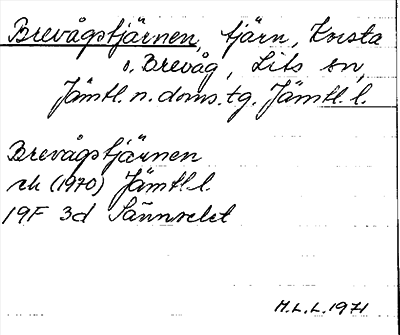 Brevågstjärnen, tjärn, Krista
o. Brevåg, Lits sn,
Jämtl. n. doms. tg. Jämtl. l.
Brevågstjärnen
rk (1970) Jämtl l.
19F 3d Sännselet
M.L.L. 1971